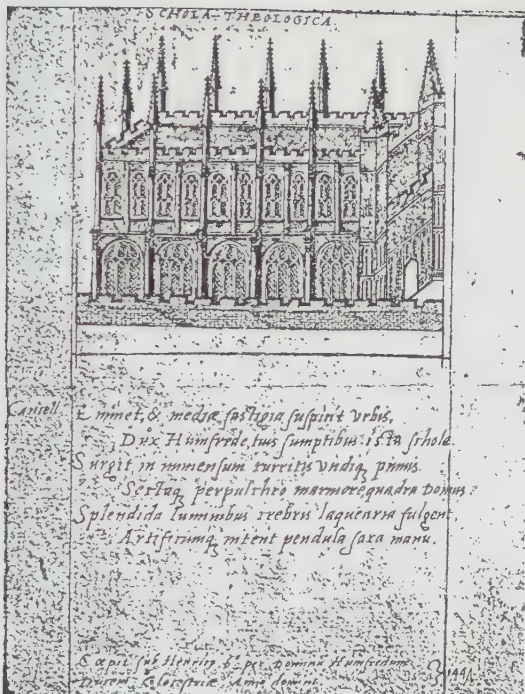 SCHOLA THEOLOGICA.
Eminet, & mediæ fastigia suspicit urbis,
Dux Humfrede, tuis sumptibus ista schola.
Surgit in immensum turritis undiq, pinnis
Sectaq, perpulchro marmore quadra domus:
Splendida luminibus crebris laquearia fulgent,
Artificumq, nitent pendula saxa manu.
Cœpit sub Henrico 6º per Dominũ Humfredum
Ducem Glocestriæ Anno domini